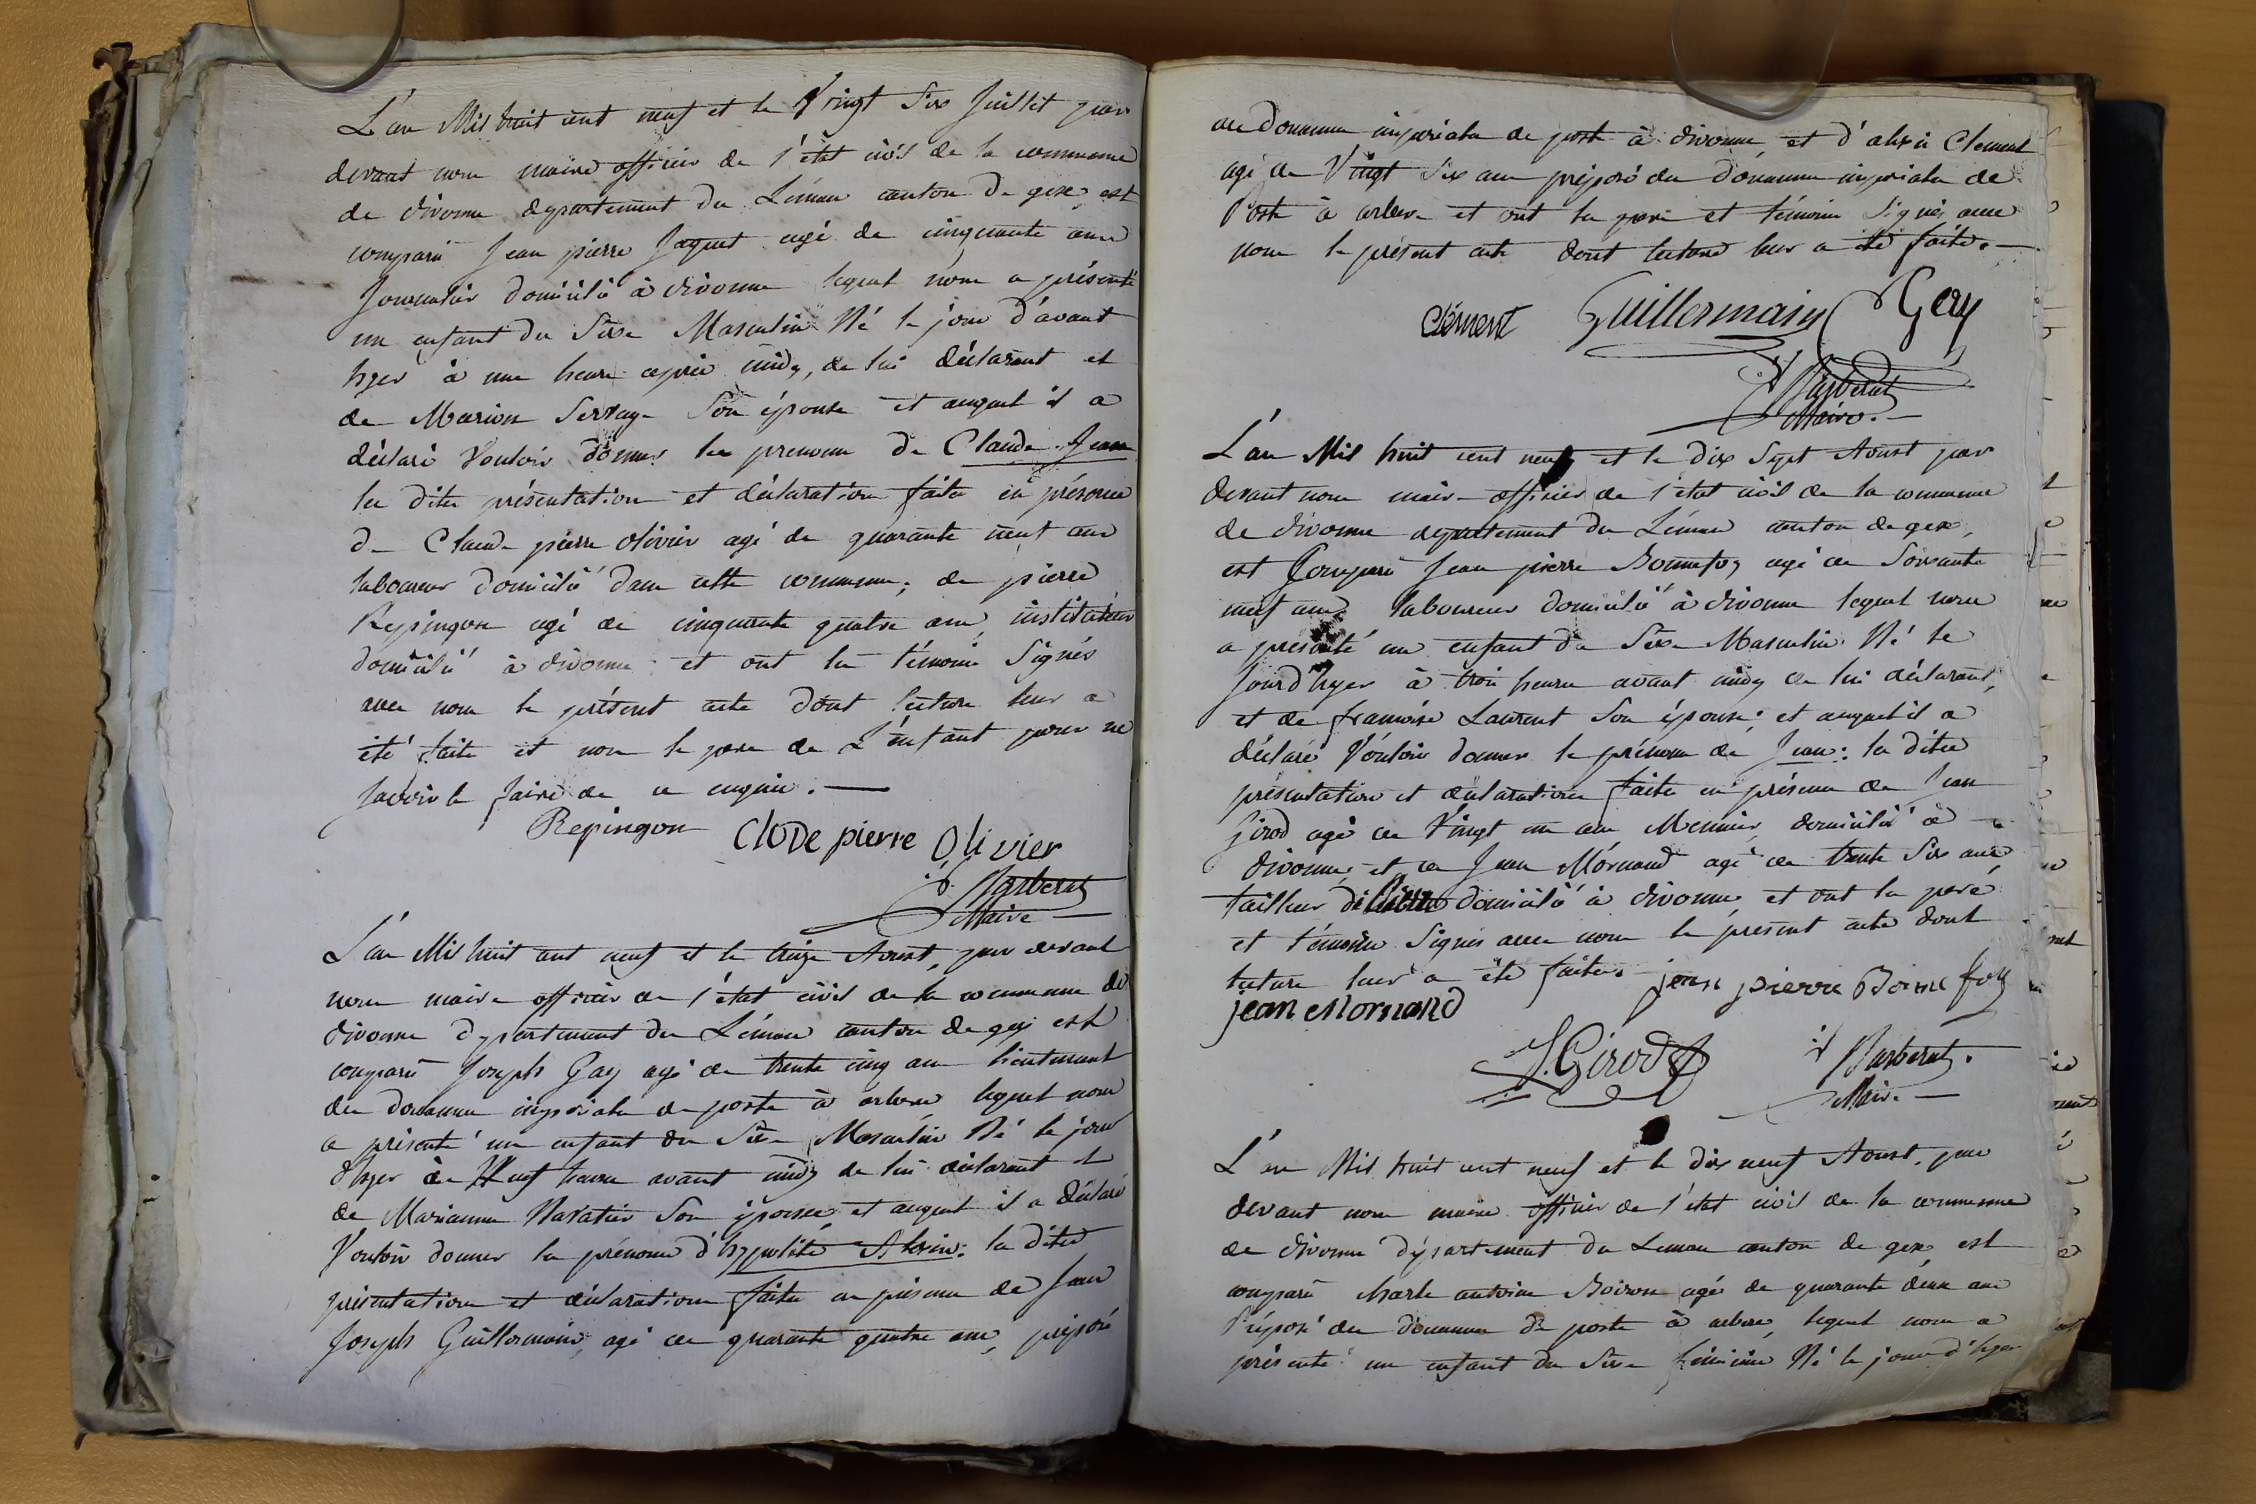 L'an Mil huit cent neuf et le Vingt Six Juillet par
devant nous maire officier de l'état civil de la commune
de divonne departement du Léman canton de gex, est
comparu Jean pierre Jaquet agé de cinquante ans
Journalier domicilié à divonne lequel nous a présenté
un enfant du Sexe Masculin Né le jour d'avant
hyer à une heure après midy, de lui déclarant et
de Marion Servage Son épouse et auquel il a
déclaré Vouloir donner les prenoms de Claude Jean
les dites présentation et déclaration faites en présence
de Claude pierre olivier agé de quarante neuf ans
laboureur domicilié dans cette commune; de pierre
Repingon agé de cinquante quatre ans, instituteur
domicilié à divonne et ont les témoins Signés
avec nous le présent acte dont lecture leur a
été faite et non le pere de L'enfant pour ne
savoir le faire de ce enquis. —
Repingon Clode pierre Olivier
Barberat
Maire
L'an Mil huit cent neuf et le treize Aoust, par devant
nous maire officier de l'état civil de la commune de
divonne departement du Léman canton de gex est
comparu Joseph Gay agé de trente cinq ans lieutenant
des douanes imperiales de poste à arbere lequel nous
a présenté un enfant du Sexe Masculin Né le jour
d'hyer à Neuf heures avant midy de lui déclarant et
de Marianne Navatier Son épouse, et auquel il a déclaré
Vouloir donner les prénoms d'hypolite Alexis: les dites
présentation et déclaration faites en présence de Jean
Joseph Guillermain, agé de quarante quatre ans, préposé
au douanes imperiales de poste à divonne, et d'alexis Clement
agé de Vingt Six ans préposé des douanes imperiales de
Poste à arbere et ont les pere et témoins Signés avec
nous le présent acte dont lecture leur a été faite. —
Clément Guillermain Gay
Barberat
Maire. —
L'an Mil huit cent neuf et le dix Sept Aoust par
devant nous maire officier de l'état civil de la commune
de divonne departement du Léman canton de gex,
est Comparu Jean pierre Bonnefoy agé de Soixante
neuf ans laboureur domicilié à divonne lequel nous
a presenté un enfant du Sexe Masculin Né le
Jour d'hyer à trois heures avant midy de lui déclarant,
et de françoise Laurent Son épouse; et auquel il a
déclaré Vouloir donner le prénom de Jean: les dites
présentation et déclaration faites en présence de Jean
Girod agé de Vingt un ans Meunier, domicilié à
divonne, et de Jean Mornand agé de trente Six ans
tailleur de domicilié à divonne, et ont les pere
et témoins Signés avec nous le présent acte dont
lecture leur a été faite. jean pierre Bonnefoy
jean Mornand
J. Girod Barberat.
Maire. —
L'an Mil huit cent neuf et le dix neuf Aoust, par
devant nous maire officier de l'état civil de la commune
de divonne département du Leman canton de gex est
comparu charle antoine Boiron agé de quarante deux ans
Préposé des douanes de poste à arbere, lequel nous a
présenté un enfant du Sexe féminin Né le jour d'hyer